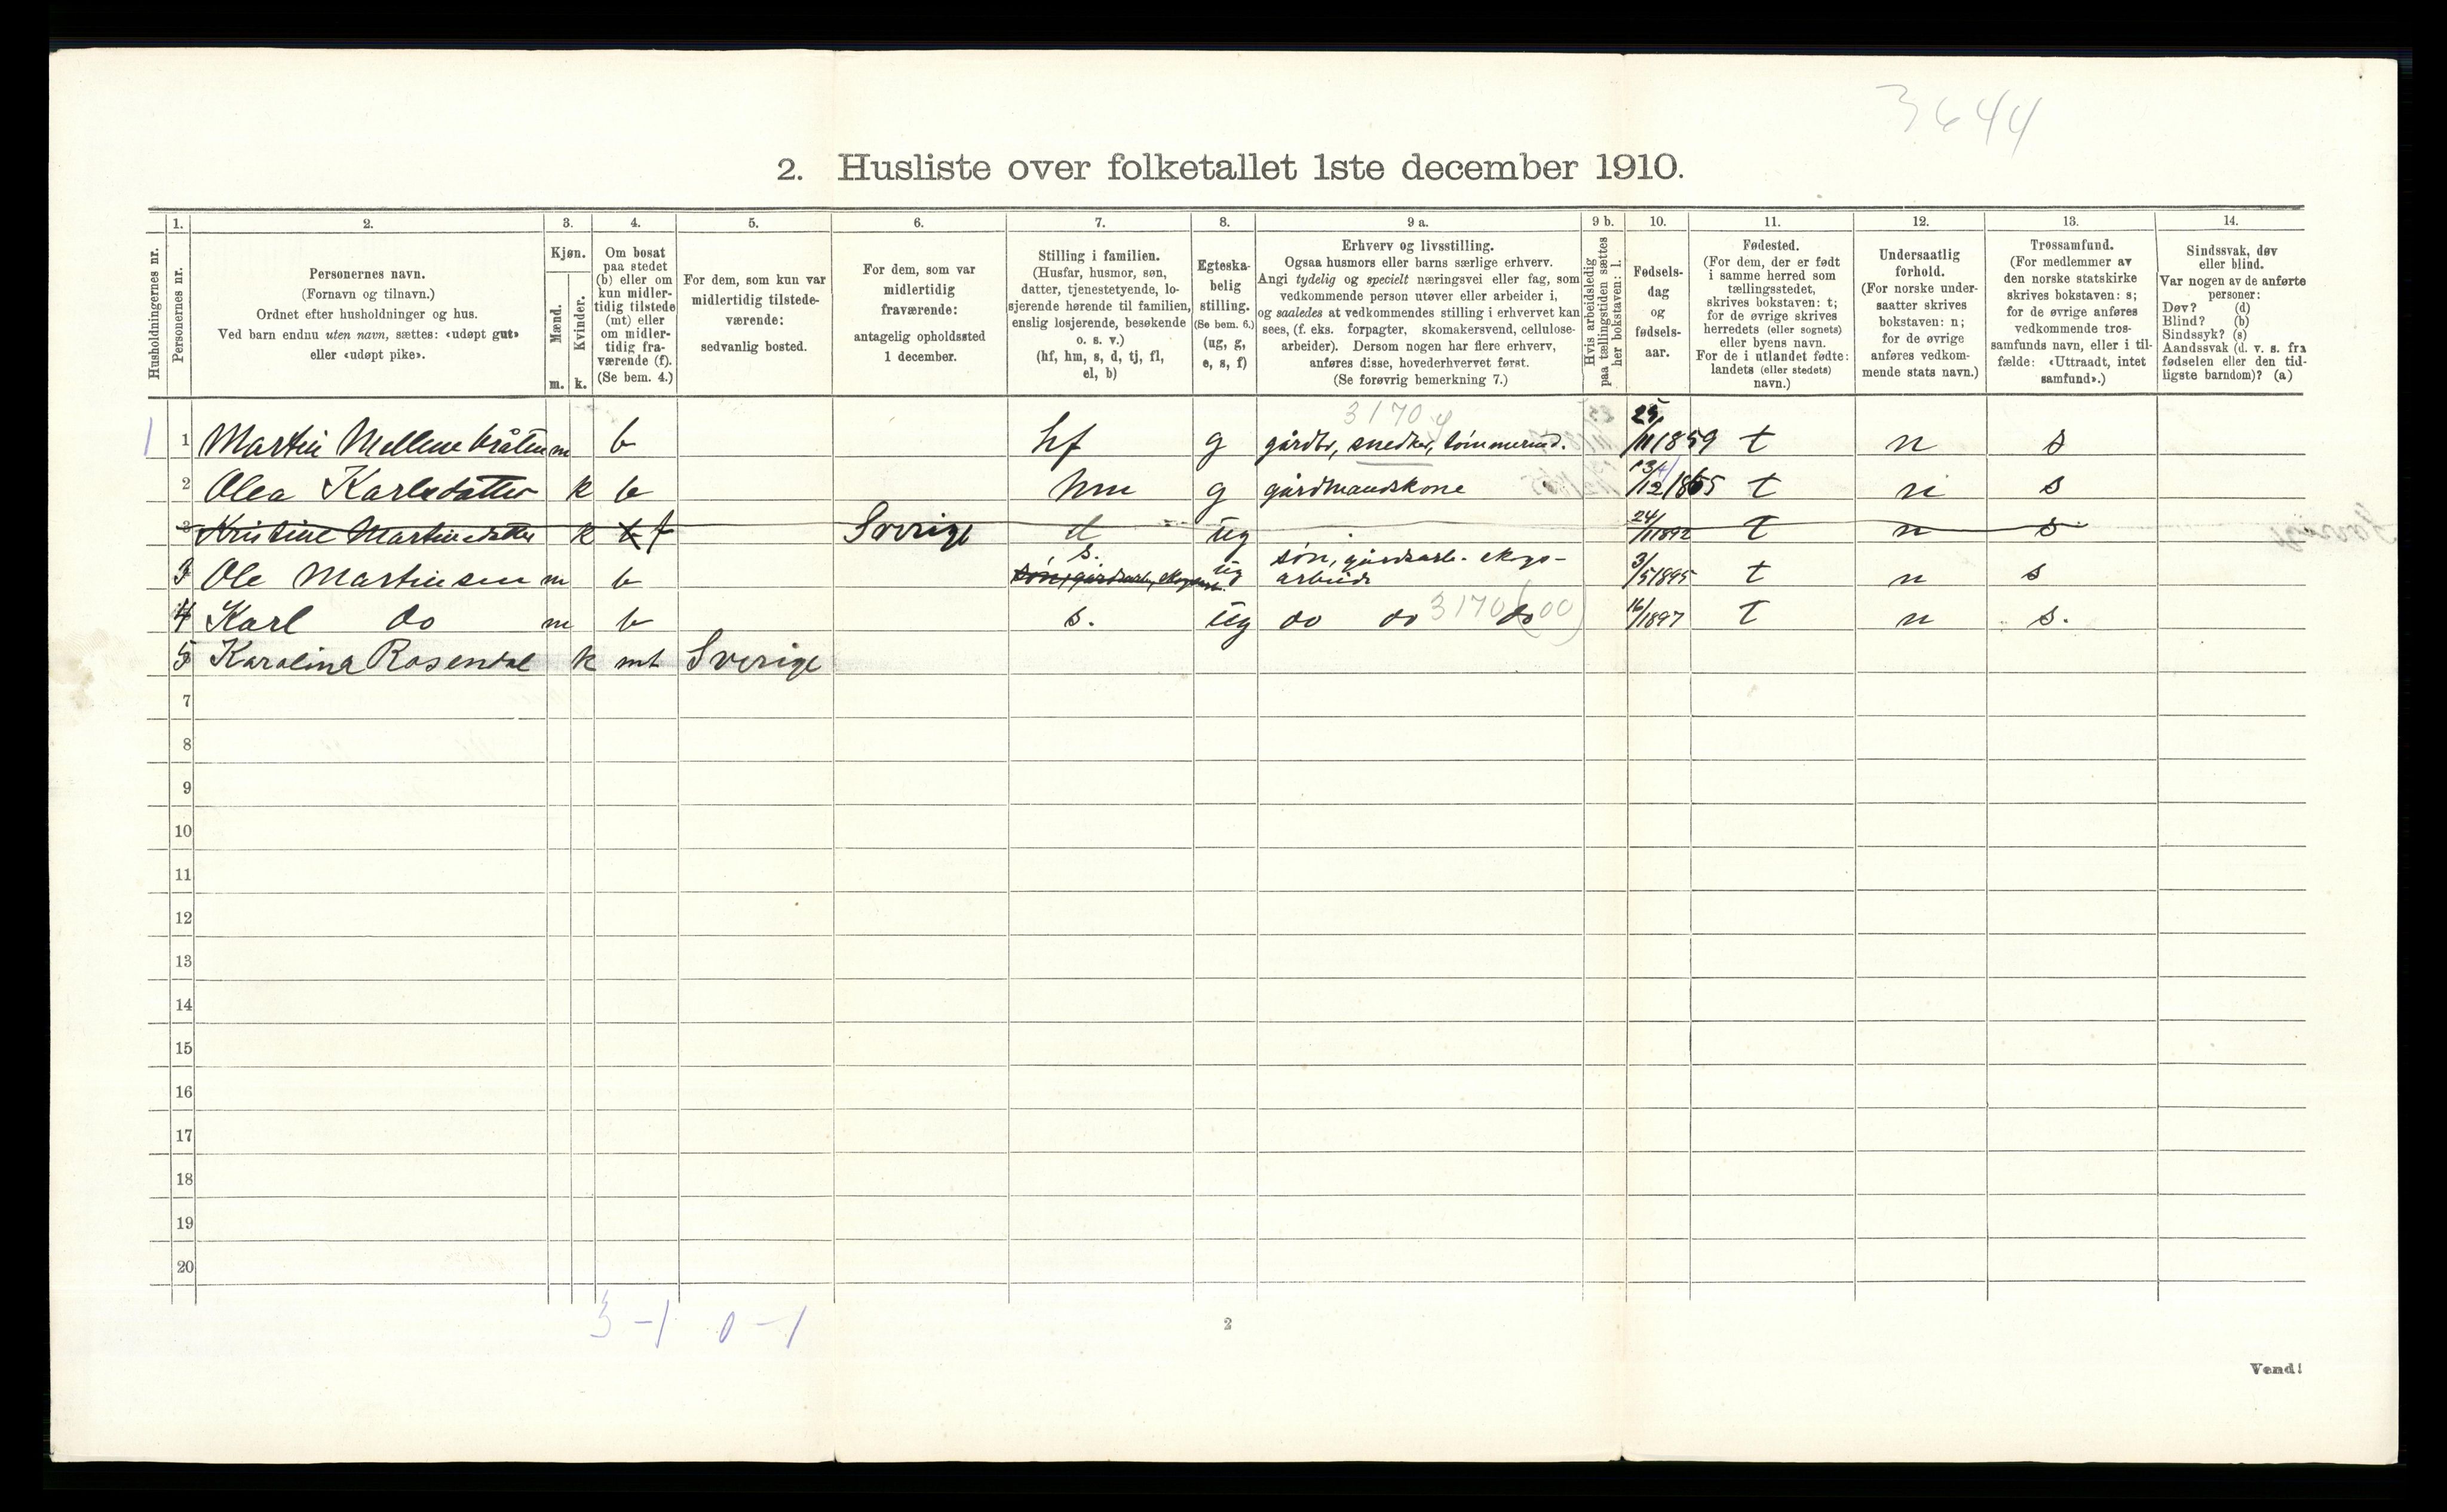 3644
2. Husliste over folketallet 1ste december 1910.
1. 2. 3. 4. 5. 6. 7. 8. 9 a. 9 b. 10. 11. 12. 13. 14.
Husholdningernes nr.
Personernes nr.
Personernes navn.
(Fornavn og tilnavn.)
Ordnet efter husholdninger og hus.
Ved barn endnu uten navn, sættes: «udøpt gut»
eller «udøpt pike».
Kjøn.
Mænd.
Kvinder.
m. k.
Om bosat
paa stedet
(b) eller om
kun midler-
tidig tilstede
(mt) eller
om midler-
tidig fra-
værende (f).
(Se bem. 4.)
For dem, som kun var
midlertidig tilstede-
værende:
sedvanlig bosted.
For dem, som var
midlertidig
fraværende:
antagelig opholdssted
1 december.
Stilling i familien.
(Husfar, husmor, søn,
datter, tjenestetyende, lo-
sjerende hørende til familien,
enslig losjerende, besøkende
o. s. v.)
(hf, hm, s, d, tj, fl,
el, b)
Egteska-
belig
stilling.
(Se bem. 6.)
(ug, g,
e, s, f)
Erhverv og livsstilling.
Ogsaa husmors eller barns særlige erhverv.
Angi tydelig og specielt næringsvei eller fag, som
vedkommende person utøver eller arbeider i,
og saaledes at vedkommendes stilling i erhvervet kan
sees, (f. eks. forpagter, skomakersvend, cellulose-
arbeider). Dersom nogen har flere erhverv,
anføres disse, hovederhvervet først.
(Se forøvrig bemerkning 7.)
Hvis arbeidsledig
paa tællingstiden sættes
her bokstaven: l.
Fødsels-
dag
og
fødsels-
aar.
Fødested.
(For dem, der er født
i samme herred som
tællingsstedet,
skrives bokstaven: t;
for de øvrige skrives
herredets (eller sognets)
eller byens navn.
For de i utlandet fødte:
landets (eller stedets)
navn.)
Undersaatlig
forhold.
(For norske under-
saatter skrives
bokstaven: n;
for de øvrige
anføres vedkom-
mende stats navn.)
Trossamfund.
(For medlemmer av
den norske statskirke
skrives bokstaven: s;
for de øvrige anføres
vedkommende tros-
samfunds navn, eller i til-
fælde: «Uttraadt, intet
samfund».)
Sindssvak, døv
eller blind.
Var nogen av de anførte
personer:
Døv? (d)
Blind? (b)
Sindssyk? (s)
Aandssvak (d. v. s. fra
fødselen eller den tid-
ligste barndom)? (a)
3170 g
1 1 Martin Mellembråten m b hf g gårdbr, snedker, tømmermd. 25/11 1859 t n s
2 Olea Karlsdatter k b hm g gårdmandskone 13/12 1865 t n s
3 Kristine Martinsdatter k f Sverige d ug 24/11 1892 t n s
3 Ole Martinsen m b s. ug søn, gårdsarb. skogs-
arbeide 3/5 1895 t n s
4 Karl do m b s. ug do do do 3170 (00) 16/ 1897 t n s.
5 Karolina Rosendal k mt Sverige
7
8
9
10
11
12
13
14
15
16
17
18
19
20
3-1 0-1
2
Vend!